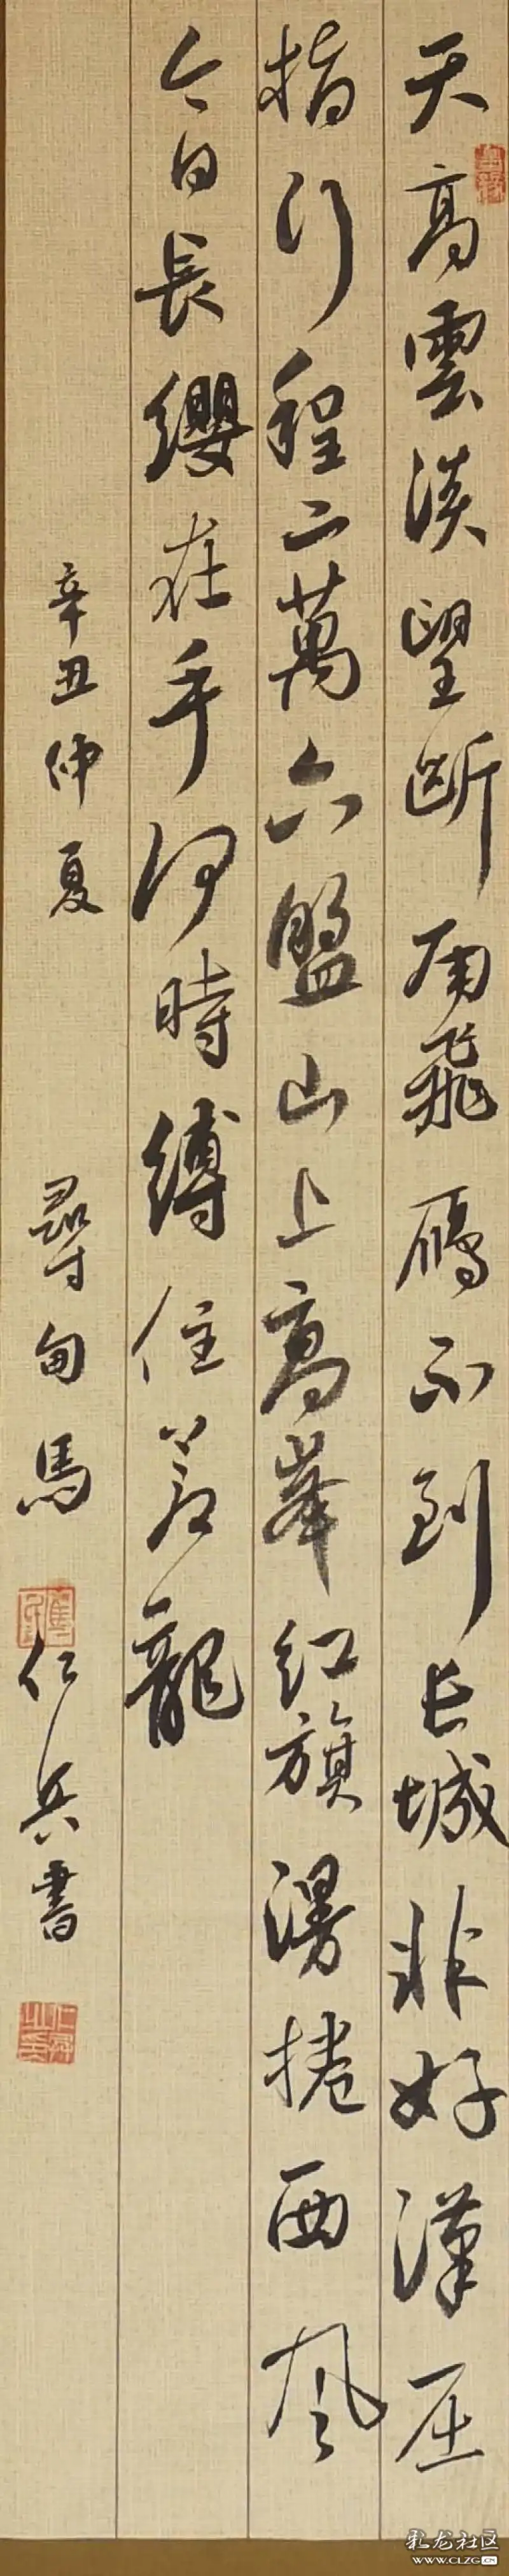 天高雲淡望断南飛鴈不到長城非好漢屈
指行程二萬六盤山上高峯紅旗漫捲西風
今日長纓在手何時縛住蒼龍
辛丑仲夏 尋甸馬仁兵書
彩龙社区
WWW.CLZG.CN